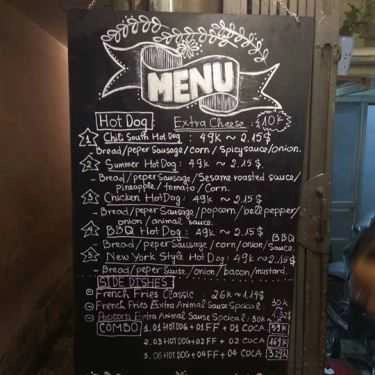 MENU
Hot Dog Extra Cheese: 10k
1 Chili South Hot Dog: 49k ~ 2.15$
- Bread/peper Sausage/corn/Spicy sauce/onion.
2 Summer Hot Dog: 49k ~ 2.15$
- Bread/peper Sausage/Sesame roasted sauce/
pineapple/tomato/Corn.
3 Chicken Hot Dog: 49k ~ 2.15$
- Bread/peper Sausage/popcorn/bell pepper/
onion/animal sauce.
4 BBQ Hot Dog: 49k ~ 2.15$
- Bread/peper Sausage/corn/onion/BBQ
Sauce.
5 New York Style Hot Dog: 49k ~ 2.15$
- Bread/peper Sause/onion/bacon/mustard.
SIDE DISHES
French Fries Classic 26k ~ 1.14$
French Fries Extra Animal Sause Spocical: 30k
Popcorn Extra Animal Sause Socical: 30k
COMBO 1. 01 HOT DOG + 01 FF + 01 COCA
2. 03 HOT DOG + 02 FF + 02 COCA 169k
3. 06 HOT DOG + 04 FF + 04 COCA 329k